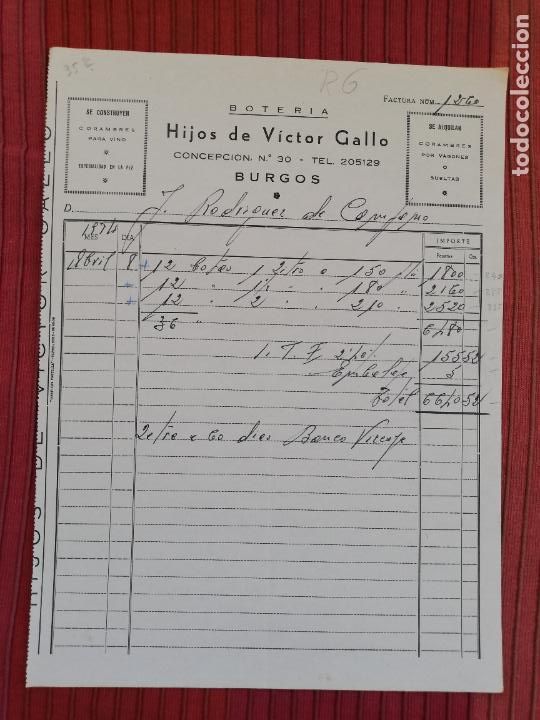 35 €
RG
FACTURA NÚM. 1260
BOTERIA
Hijos de Víctor Gallo
CONCEPCION, N.º 30 - TEL. 205129
BURGOS
SE CONSTRUYEN
CORAMBRES
PARA VINO
ESPECIALIDAD EN LA PEZ
SE ALQUILAN
CORAMBRES
POR VAGONES
Y
SUELTAS
D. J. Rodriguez de
1974
MES DIA IMPORTE
Pesetas Cts.
Abril 8 + 12 botas 1 litro a 150 pts 1800
+ 12 " 1½ " " 180 " 2160
+ 12 " 2 " " 210 " 2520
36 " 6480
I. T. E. 2'40% 155 52
Embalaje 5
Total 6640 52
Letra a 60 dias Banco
HIJOS DE VICTOR GALLO
todocoleccion.net